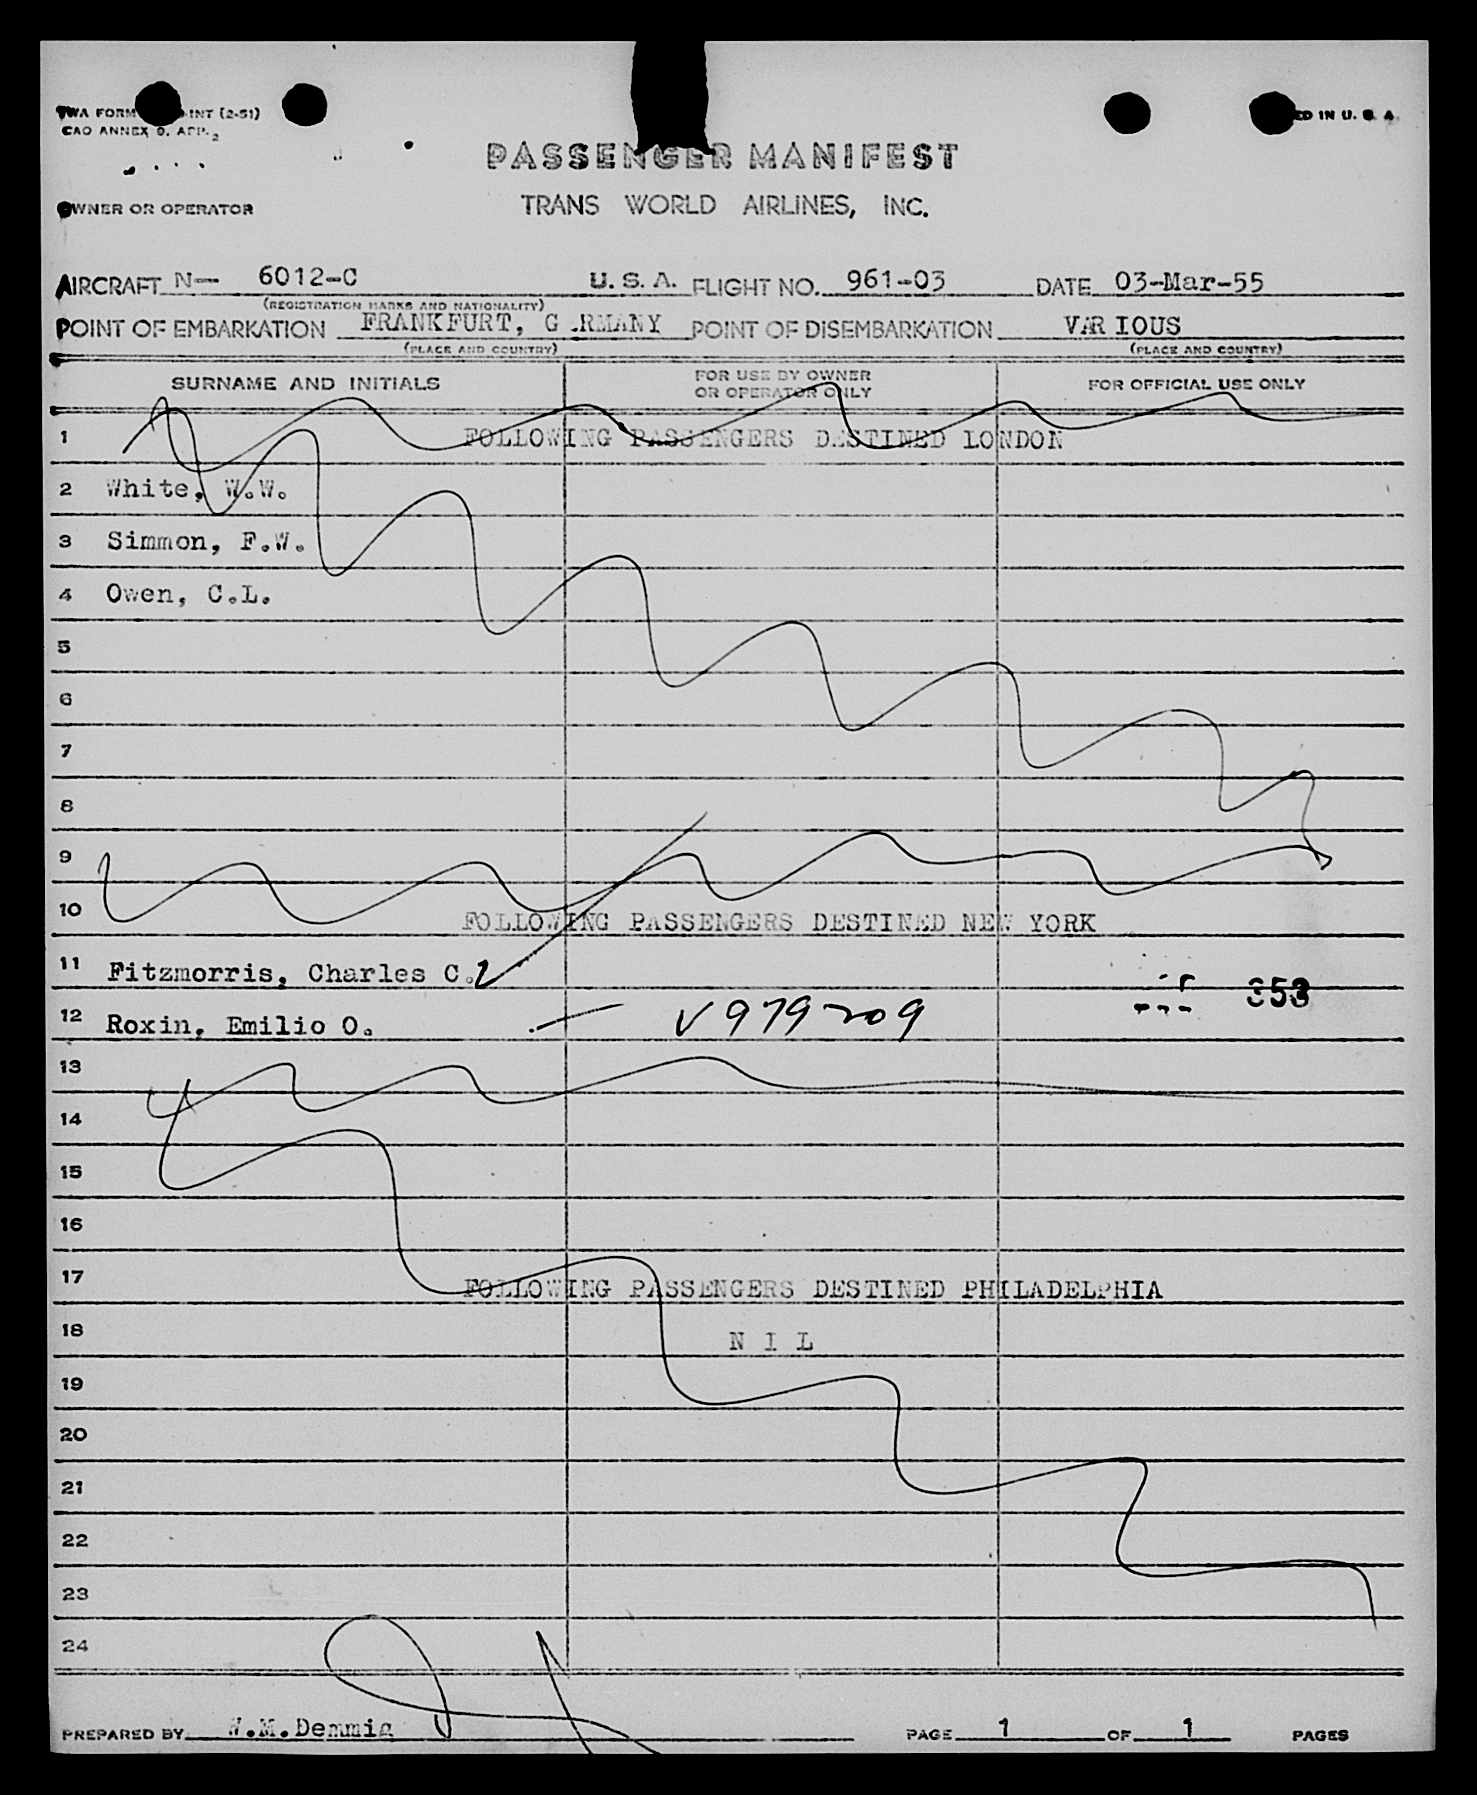 TWA FORM INT (2-51)
CAO ANNEX 9. APP. 2
ED IN U. S. A.
PASSENGER MANIFEST
OWNER OR OPERATOR TRANS WORLD AIRLINES, INC.
AIRCRAFT N— 6012-C U. S. A. FLIGHT NO. 961-03 DATE 03-Mar-55
(REGISTRATION MARKS AND NATIONALITY)
POINT OF EMBARKATION FRANKFURT, G.RMANY POINT OF DISEMBARKATION VARIOUS
(PLACE AND COUNTRY) (PLACE AND COUNTRY)
SURNAME AND INITIALS FOR USE BY OWNER OR OPERATOR ONLY FOR OFFICIAL USE ONLY
1 FOLLOWING PASSENGERS DESTINED LONDON
2 White, W.W.
3 Simmon, F.W.
4 Owen, C.L.
5
6
7
8
9
10 FOLLOWING PASSENGERS DESTINED NEW YORK
11 Fitzmorris, Charles C.
12 Roxin, Emilio O. — V979209 353
13
14
15
16
17 FOLLOWING PASSENGERS DESTINED PHILADELPHIA
18 N I L
19
20
21
22
23
24
PREPARED BY W.M.Demmig PAGE 1 OF 1 PAGES